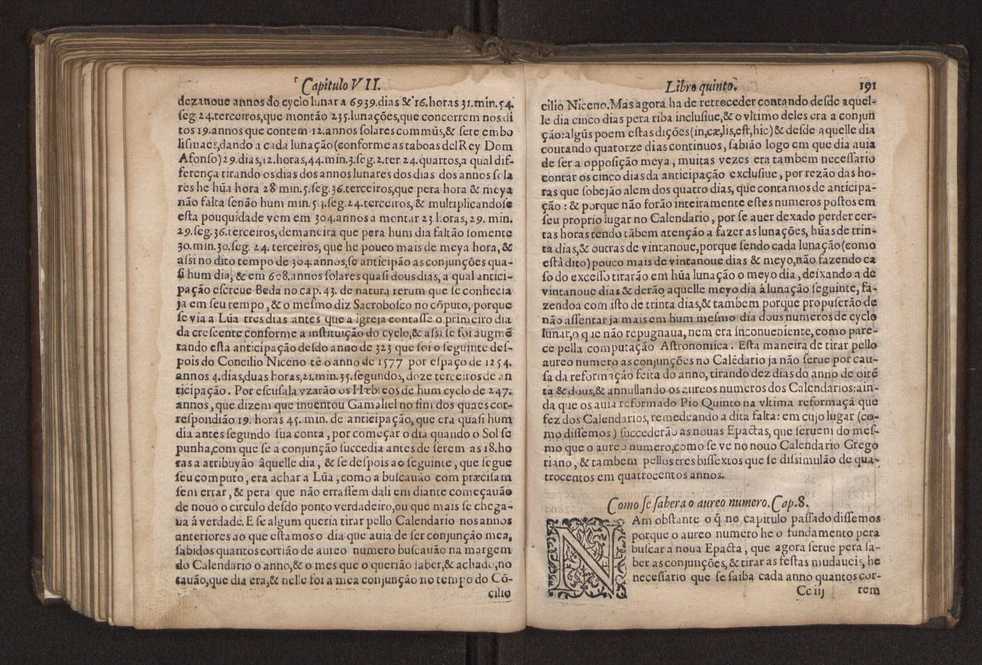 Capitulo VII.
dezanoue annos do cyclo lunar a 6939.dias & 16.horas 31.min.54.
seg 24.terceiros,que montão 235.lunações,que concorrem nos di
tos 19.annos que contem 12.annos solares commũs,& sete embo
lismaes,dando a cada lunação(conforme as taboas del Rey Dom
Afonso)29.dias,12.horas,44.min.3.seg.2.ter 24.quartos,a qual dif-
ferença tirando os dias dos annos lunares dos dias dos annos sola
res he hũa hora 28 min.5.seg.36.terceiros,que pera hora & meya
não falta senão hum min.54.seg.24.terceiros,& multiplicandose
esta pouquidade vem em 304.annos a montar 23 horas, 29. min.
29.seg.36.terceiros,demaneira que pera hum dia faltão somente
30.min.30.seg. 24. terceiros, que he pouco mais de meya hora,&
assi no dito tempo de 304.annos,se anticipão as conjunções qua-
si hum dia,& em 608.annos solares quasi dous dias, a qual antici-
pação escreue Beda no cap.43. de natura rerum que se conhecia
ja em seu tempo, & o mesmo diz Sacrobosco no cõputo, porque
se via a Lũa tres dias antes que a igreja contasse o primeiro dia
da crescente conforme a instituição do cyclo,& assi se foi augmẽ
tando esta anticipação desdo anno de 323 que foi o seguinte des-
pois do Concilio Niceno tè o anno de 1577 por espaço de 1254.
annos 4.dias,duas horas,21.min.35.segundos, doze terceiros de an
ticipação. Por escusala vzarão os Hebreos de hum cyclo de 247.
annos, que dizem que inuentou Gamaliel no fim dos quaes cor-
respondião 19. horas 45.min. de anticipação, que era quasi hum
dia antes segundo sua conta , por começar o dia quando o Sol se
punha,com que se a conjunção succedia antes de serem as 18.ho
ras a attribuyão àquelle dia, & se despois ao seguinte, que segue
seu computo, era achar a Lũa, como a buscauão com precisam
sem errar, & pera que não errassem dali em diante começauão
de nouo o circulo desdo ponto verdadeiro,ou que mais se chega-
ua á verdade.E se algum queria tirar pello Calendario nos annos
anteriores ao que estamos o dia que auia de ser conjunção mea,
sabidos quantos corrião de aureo numero buscauão na margem
do Calendario o anno,& o mes que o querião saber,& achado,no
tauão,que dia era,& nelle foi a mea conjunção no tempo do Cõ-
cilio
Libro quinto. 191
cilio Niceno.Mas agora ha de retroceder contando desde aquel-
le dia cinco dias pera riba inclusiue,& o vltimo deles era a conjun
ção:algũs poem estas dições(in,cæ,lis,est,hic)& desde aquelle dia
contando quatorze dias continuos, sabião logo em que dia auia
de ser a opposição meya, muitas vezes era tambem necessario
contar os cinco dias da anticipação exclusiue, por rezão das ho-
ras que sobejão alem dos quatro dias, que contamos de anticipa-
ção : & porque não forão inteiramente estes numeros postos em
seu proprio lugar no Calendario , por se auer dexado perder cer-
tas horas tendo tãbem atenção a fazer as lunações, hũas de trin-
ta dias,& outras de vintanoue,porque sendo cada lunação(como
està dito) pouco mais de vintanoue dias & meyo,não fazendo ca
so do excesso tirarão em hũa lunação o meyo dia, deixando a de
vintanoue dias & derão aquelle meyo dia à lunação seguinte, fa-
zendoa com isto de trinta dias,& tambem porque propuserão de
não assentar ja mais em hum mesmo dia dous numeros de cyclo
lunar,o que não repugnaua, nem era inconueniente, como pare-
ce pella computação Astronomica. Esta maneira de tirar pello
aureo numero as conjunções no Calẽdario ja não serue por cau-
sa da reformação feita do anno, tirando dez dias do anno de oitẽ
ta & dous,& annullando os aureos numeros dos Calendarios:ain-
da que os auia reformado Pio Quinto na vltima reformaçã que
fez dos Calendarios, remedeando a dita falta: em cujo lugar (co-
mo dissemos) succederão as nouas Epactas, que seruem do mes-
mo que o aureo numero,como se ve no nouo Calendario Grego
riano, & tambem pellos tres bissextos que se dissimulão de qua-
trocentos em quatrocentos annos.
Como se sabera o aureo numero. Cap.8.
NAm obstante o q̃ no capitulo passado dissemos
porque o aureo numero he o fundamento pera
buscar a noua Epacta, que agora serue pera sa-
ber as conjunções,& tirar as festas mudaueis, he
necessario que se saiba cada anno quantos cor-
Cc iij rem